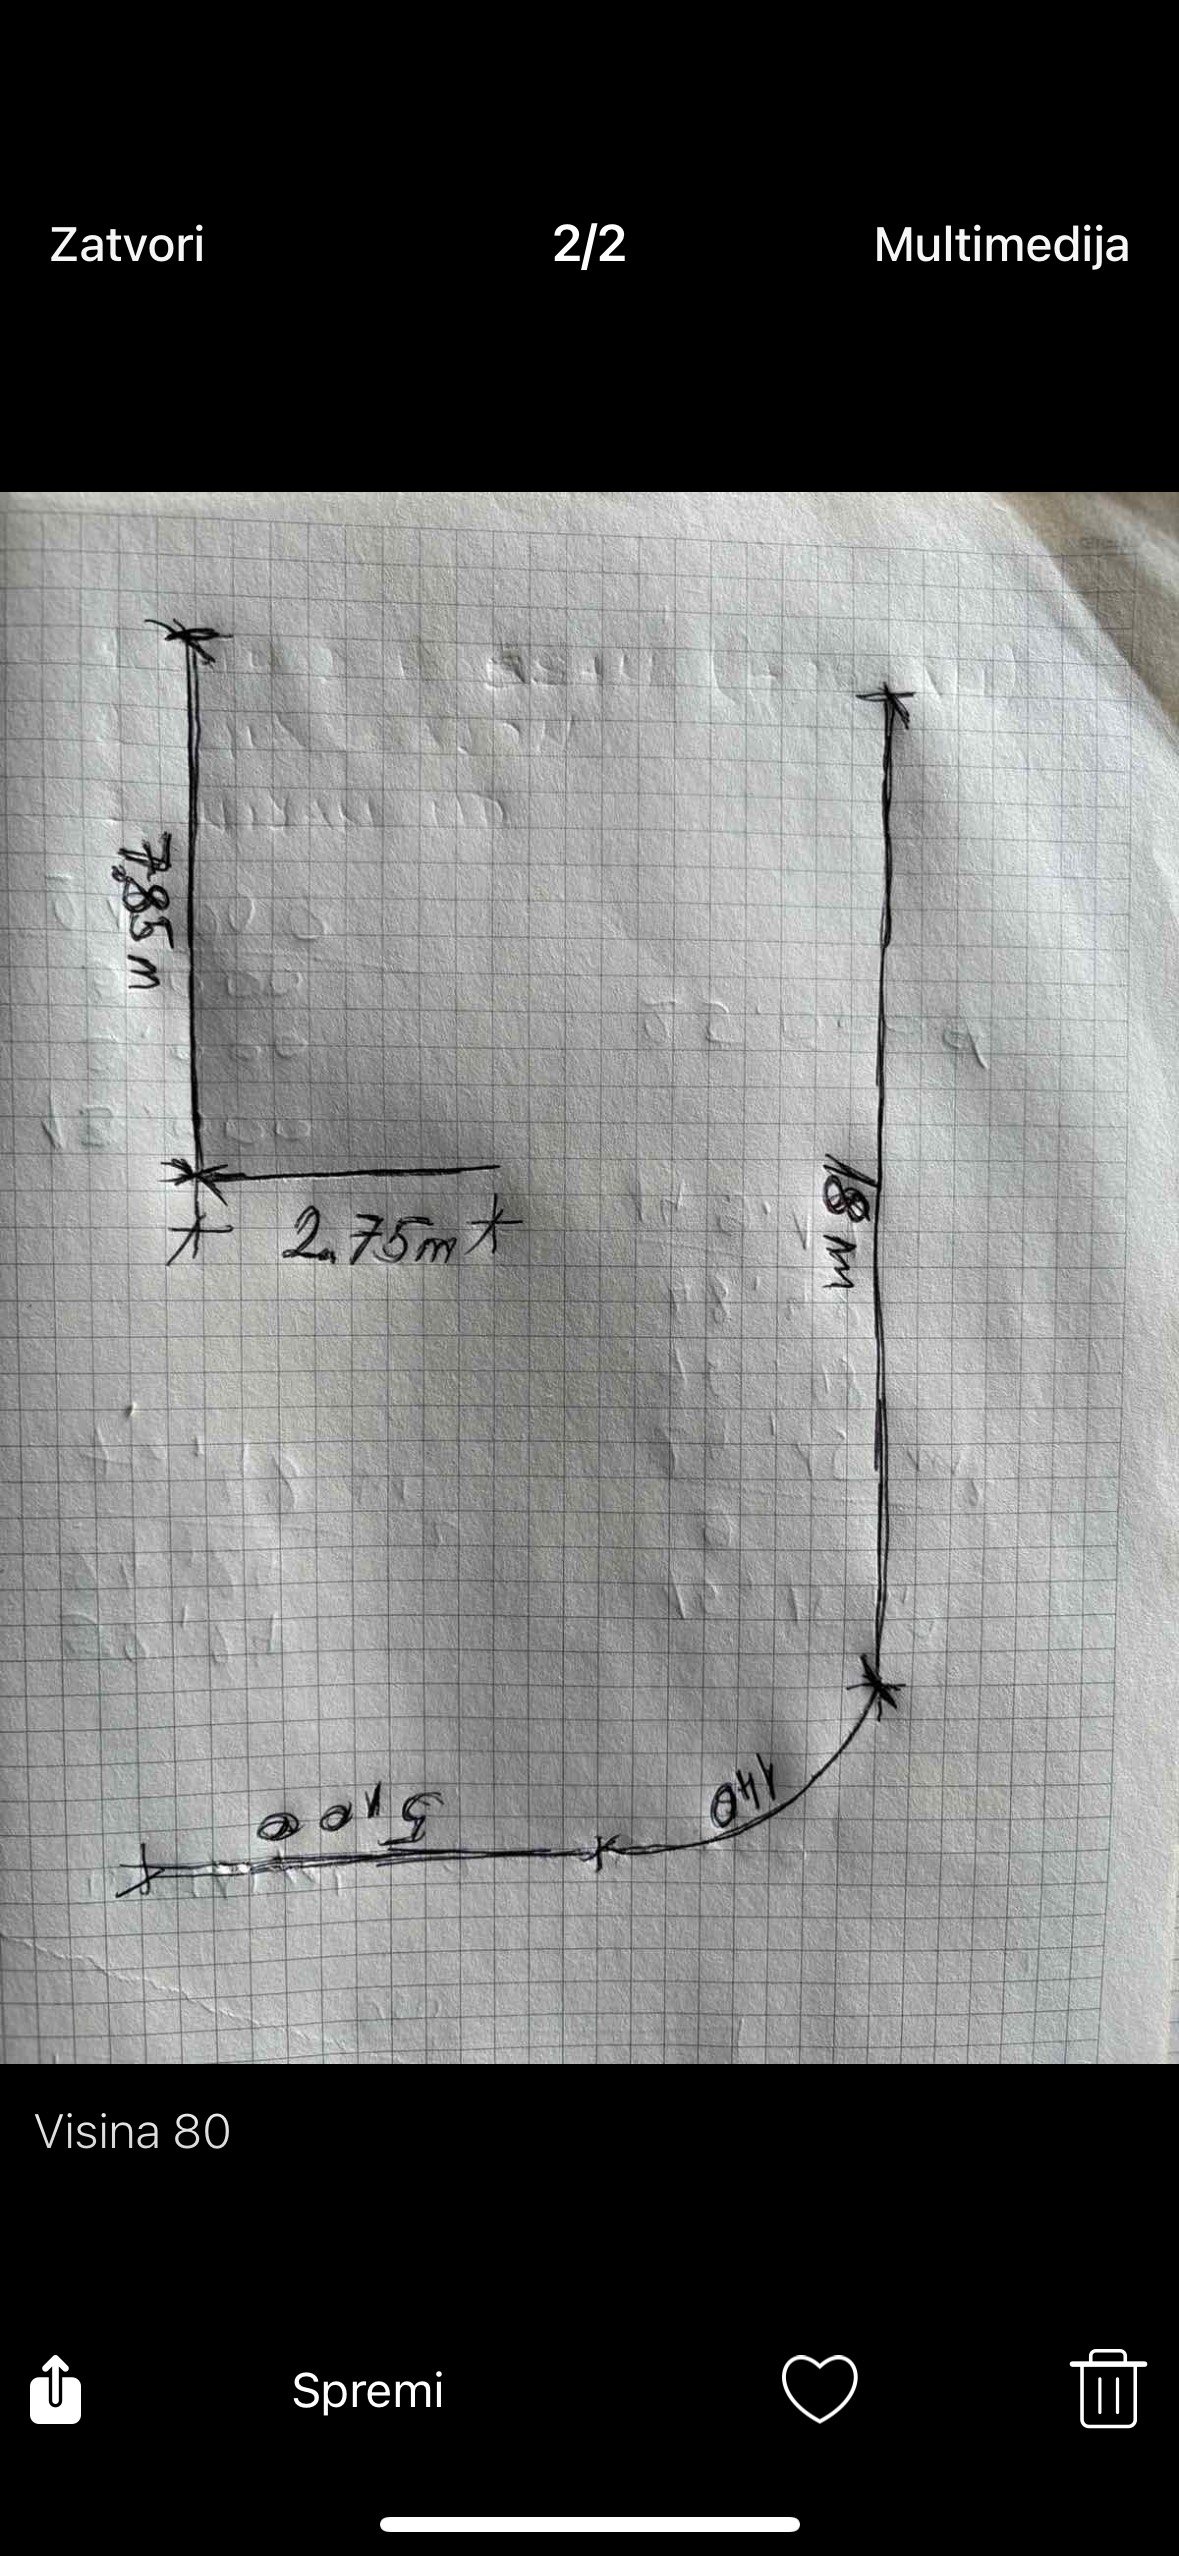 Zatvori
2/2
Multimedija
7,85 m
2.75m
18 m
140
5,00
Visina 80
Spremi